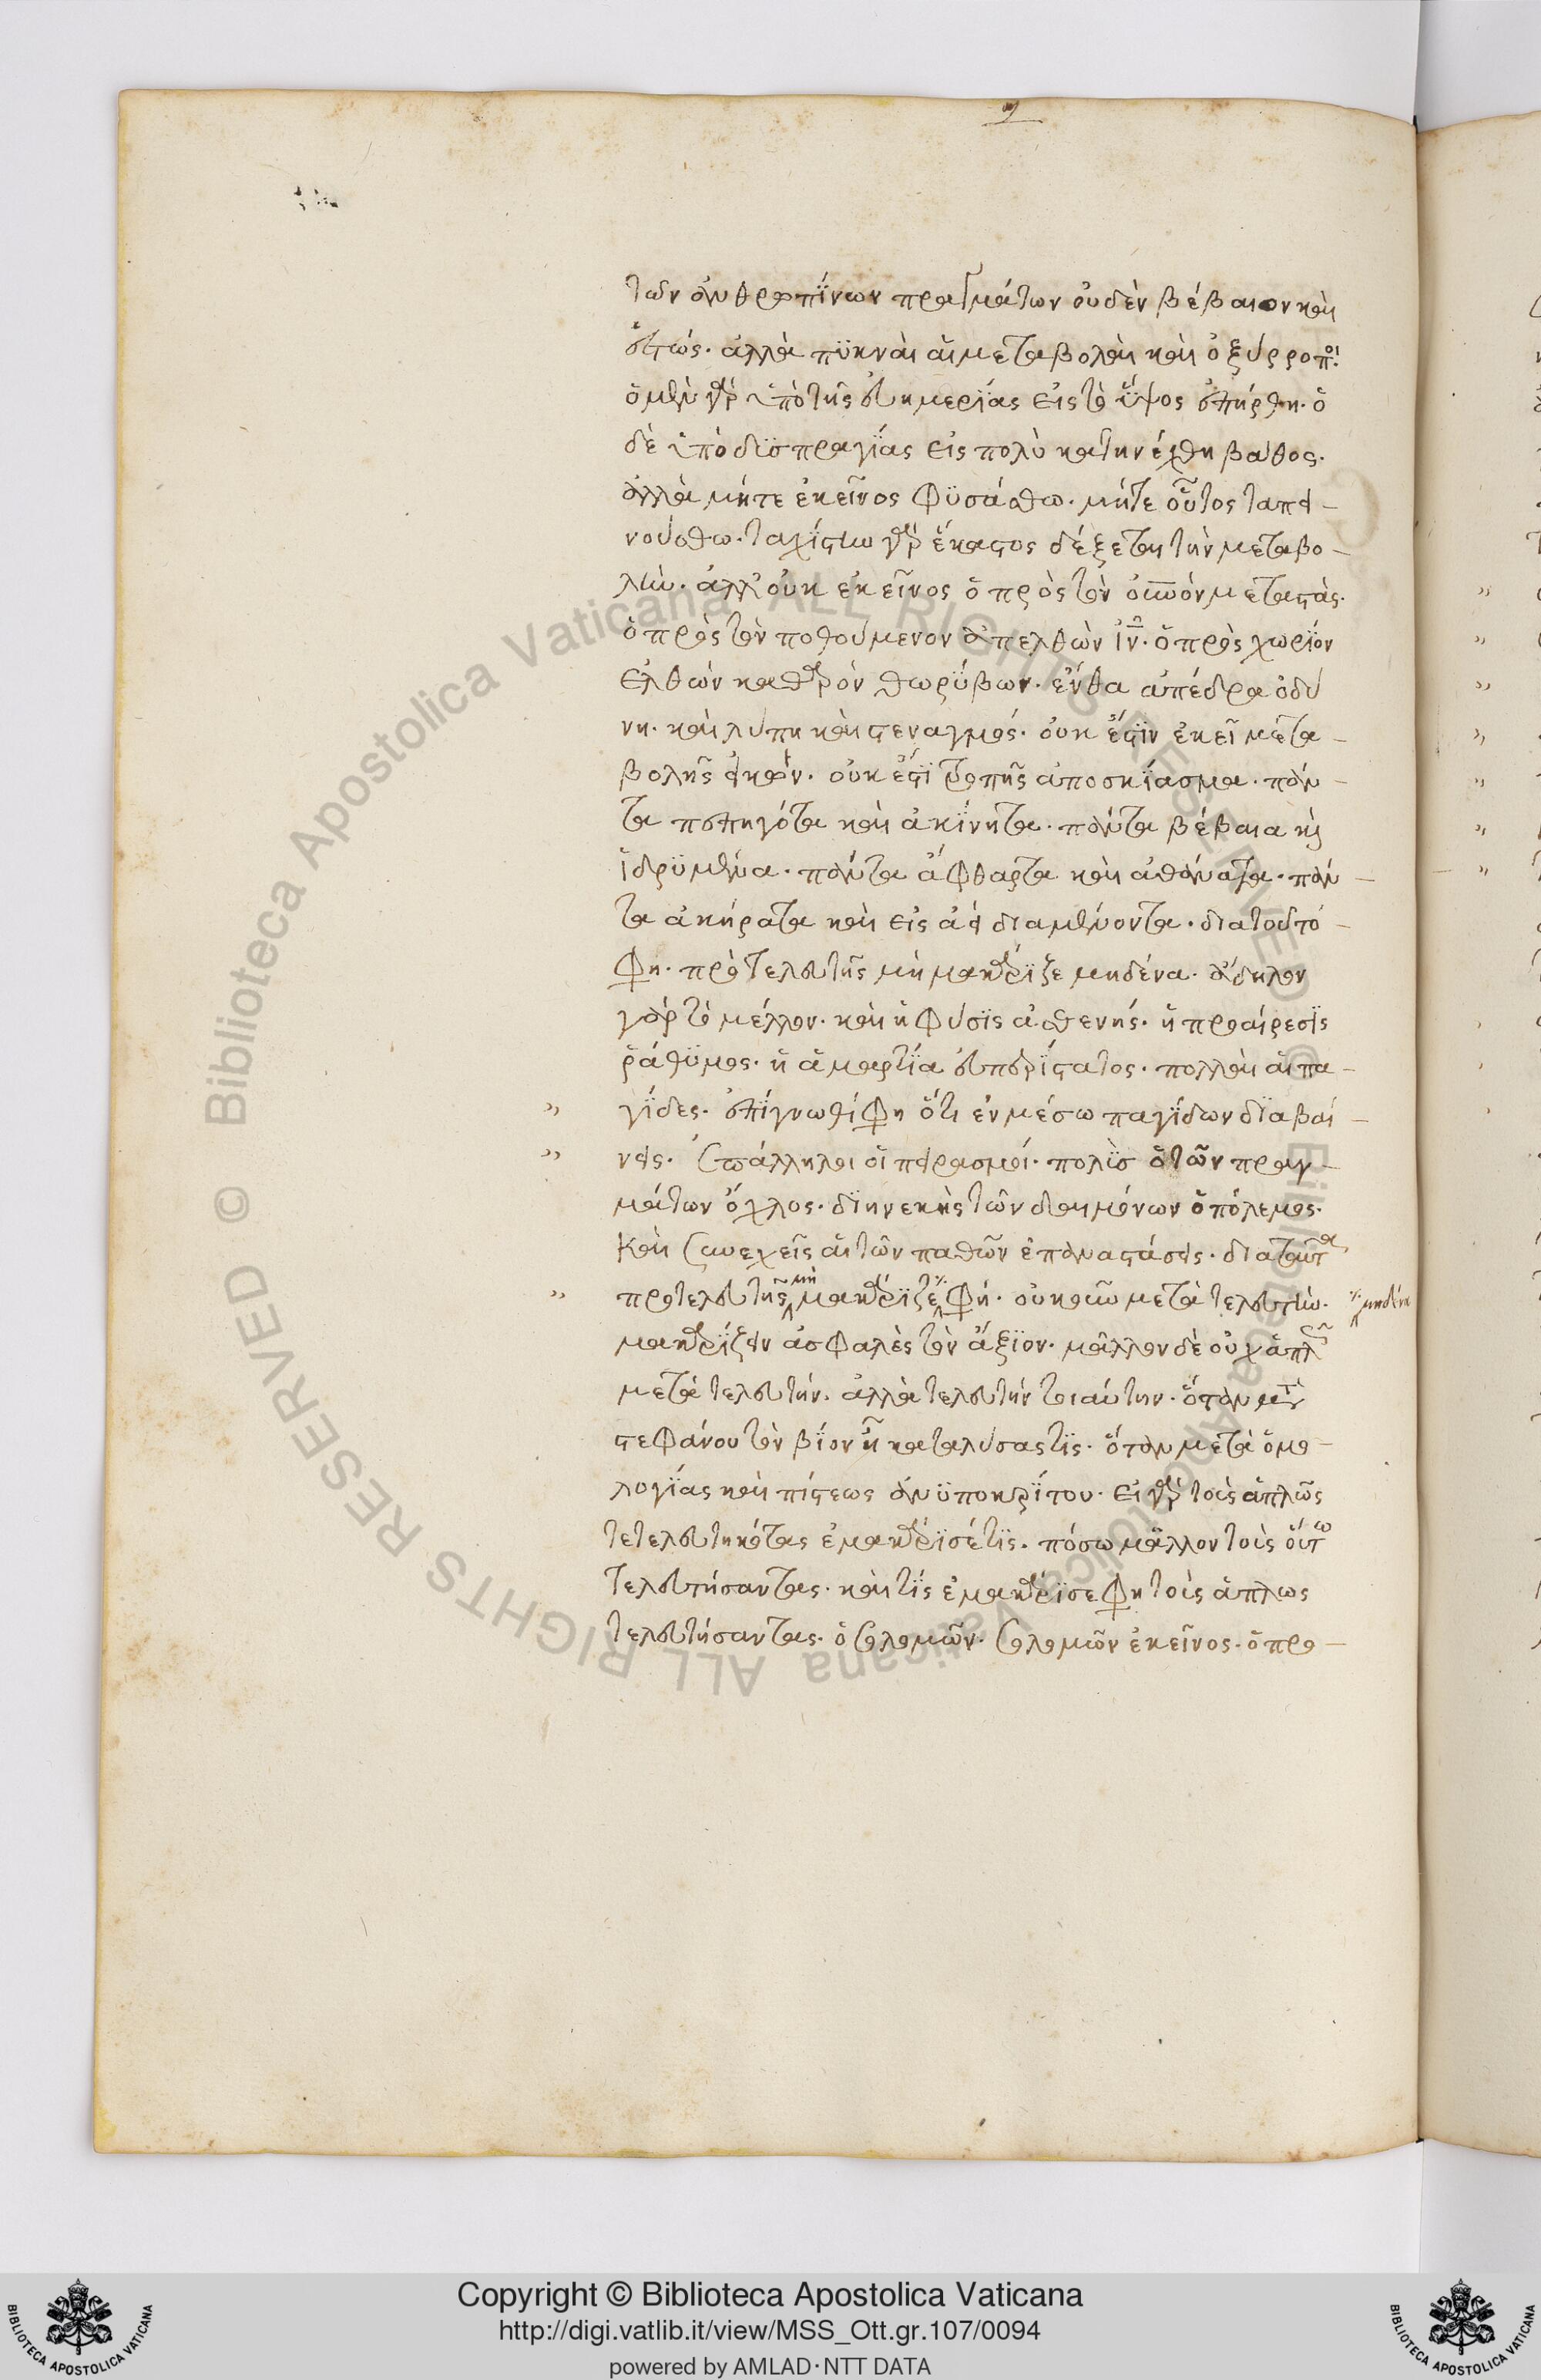 των ἀνθρωπϊνων πραγμάτων οὐδὲν βέβαιον καὶ
ἑστώς· ἀλλὰ πϋκναὶ αἱ μεταβολαὶ καὶ ὀξύρροποι·
ὁ μὲν γὰρ ὑπὸ τῆς εὐημερίας εἰς τὸ ὕψος ἐπήρθη· ὁ
δὲ ὑπὸ δϋσπραγίας εἰς πολὺ κατηνέχθη βάθος·
ἀλλὰ μήτε ἐκεῖνος φϋσάσθω· μήτε οὗτος ταπει-
νούσθω· ταχίστην γὰρ ἕκαστος δέξεται τὴν μεταβο-
λήν· ἀλλ' οὐκ ἐκεῖνος ὁ πρὸς τὸν οὐνὸν μεταστάς·
ὁ πρὸς τὸν ποθούμενον ἀπελθὼν ἰν· ὁ πρὸς χωρίον
ἐλθὼν καθαρὸν θωρϋβων· ἔνθα ἀπέδρα ὀδύ
νη· καὶ λύπη καὶ στεναγμός· οὐκ ἔστϊν ἐκεῖ μετα-
βολῆς εἰκών· οὐκ ἔστϊ τροπῆς ἀποσκίασμα· πάν-
τα πεπηγότα καὶ ἀκίνητα· πάντα βέβαια καὶ
ἱδρϋμένα· πάντα ἄφθαρτα καὶ ἀθάνατα· πάν-
τα ἀκήρατα καὶ εἰς ἀεὶ διαμένοντα· διατοῦτό-
φη· πρὸ τελευτῆς μὴ μακάριζε μηδένα· ἄδηλον
γὰρ τὸ μέλλον· καὶ ἡ φύσϊς ἀσθενής· ἡ προαίρεσϊς
ῥάθϋμος· ἡ ἁμαρτία εὐπερίστατος· πολλαὶ αἱ πα-
γίδες· ἐπίγνωθί φη ὅτι ἐν μέσω παγίδων διαβαί-
νεις· ἐπάλληλοι οἱ πειρασμοί· πολὺσ ὁ τῶν πραγ-
μάτων ὄχλος· διηνεκὴς τῶν δαιμόνων ὁ πόλεμος·
καὶ συνεχεῖς αἱ τῶν παθῶν ἐπαναστάσεις· διαταῦτα
προτελευτῆς μὴ μακάριζε φή· οὐκοῦν μετὰ τελευτὴν· μηδένα
μακαρίζειν ἀσφαλὲς τὸν ἄξϊον· μᾶλλον δὲ οὐχ ἁπλῶς
μετὰ τελευτήν· ἀλλὰ τελευτὴν τοιαύτην· ὅταν μετὰ
στεφάνου τὸν βίον ἦ καταλύσας τὶς· ὅταν μετὰ ὁμο-
λογίας καὶ πίστεως ἀνϋποκρίτου· εἰ γὰρ τοὺς ἁπλῶς
τετελευτηκότας ἐμακάρϊσέ τϊς· πόσω μᾶλλον τοὺς οὕτω
τελευτήσαντας· καὶ τίς ἐμακάρϊσε φη τοὺς ἁπλως
τελευτήσαντας· ὁ σολομῶν· σολομῶν ἐκεῖνος· ὁ προ-
Copyright © Biblioteca Apostolica Vaticana
http://digi.vatlib.it/view/MSS_Ott.gr.107/0094
powered by AMLAD·NTT DATA